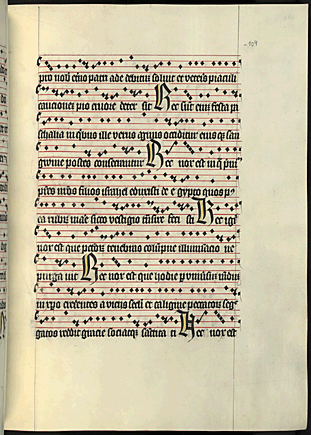 pro nob et'no patri ade debitum soluit et veteris piaculi
cautionem pio cruore deter sit Hec sūt enim festa pa
schalia in quibus ille verus agnus occiditur eiusq; san
gwine postes consecrantur Hec nox est in q
pres filios israhel eduxisti de egypto quos
rubrū mare sicco vestigio trāsire feci sti Hec igi
nox est que columpne illuminacio ne
purga uit Hec nox est que hodie p mūdū
in xpo credentes a viciis secli et caligine peccatorū segre
gatos reddit gracie sociatq; sanctita ti Hec nox est